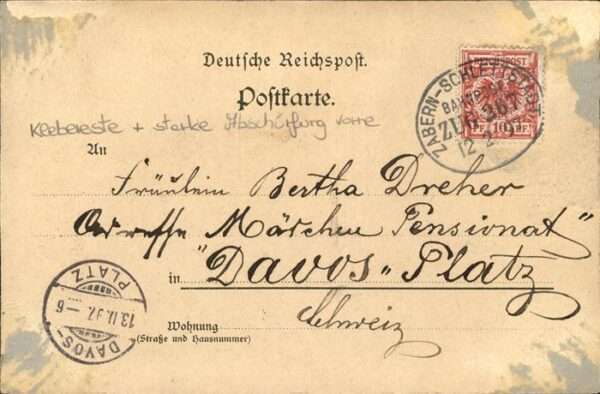 Deutsche Reichspost.
Postkarte.
Klebereste + starke Abschürfung vorne
ZABERN-SCHLETTSTADT
BAHNPOST
ZUG 367
12 2 97
REICHSPOST
10 PF
An
Fräulein Bertha Dreher
Adresse Mädchen Pensionat
in "Davos-Platz"
Schweiz
DAVOS-PLATZ
13.II.97.-6
Wohnung
(Straße und Hausnummer)